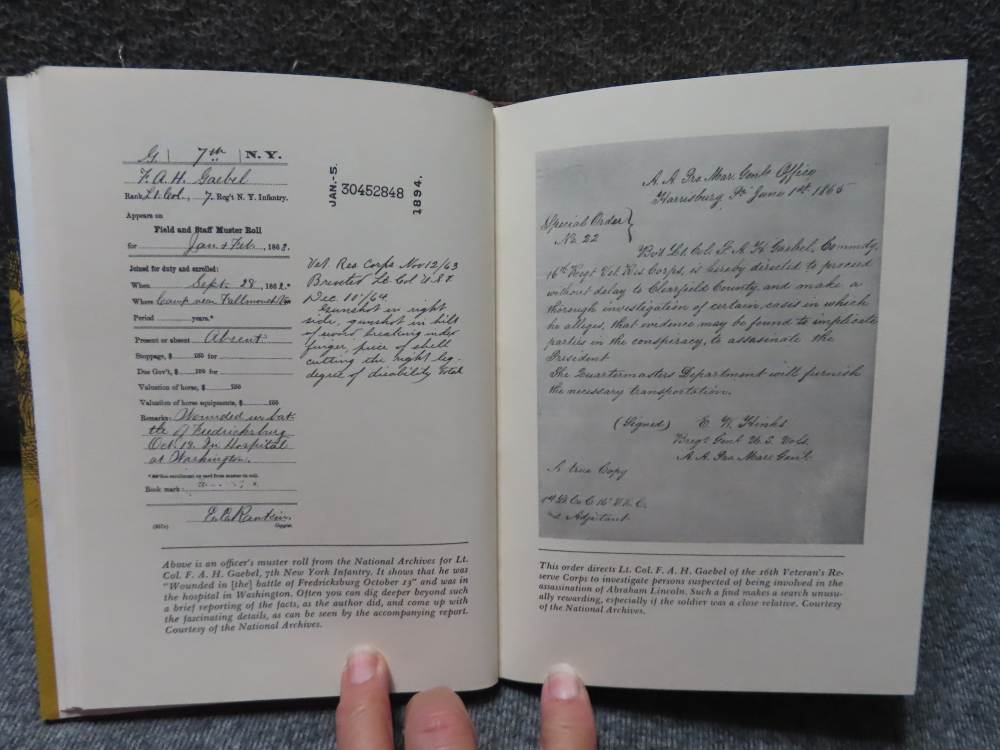 G | 7th | N. Y.
F. A. H. Gaebel
Rank Lt. Col., 7 Reg't N. Y. Infantry.
Appears on
Field and Staff Muster Roll
for Jan & Feb, 1863.
Joined for duty and enrolled:
When Sept. 28, 186 .*
Where Camp near Falmouth Va
Period years.*
Present or absent Absent
Stoppage, $ 100 for
Due Gov't, $ 100 for
Valuation of horse, $ 100
Valuation of horse equipments, $ 100
Remarks: Wounded in bat-
tle of Fredricksburg
Oct. 13. In Hospital
at Washington.
Book mark:
E. C. Rankin
Copyist.
JAN.-5.
30452848
1894.
Vet. Res. Corps Nov 12/63
Brevted Lt Col U S V
Dec 10/64
Gunshot in right
side, gunshot in hilt
of sword breaking index
finger, piece of shell
cutting the right leg-
degree of disability total
Above is an officer's muster roll from the National Archives for Lt.
Col. F. A. H. Gaebel, 7th New York Infantry. It shows that he was
"Wounded in [the] battle of Fredricksburg October 13" and was in
the hospital in Washington. Often you can dig deeper beyond such
a brief reporting of the facts, as the author did, and come up with
the fascinating details, as can be seen by the accompanying report.
Courtesy of the National Archives.
A. A. Pro Mar. Genls Office
Harrisburg Pa June 1st 1865
Special Order }
No. 22
Bvt Lt. Col. F. A. H. Gaebel, Commdg,
16th Regt Vet Res Corps, is hereby directed to proceed
without delay to Clearfield County, and make a
thorough investigation of certain cases in which
he alleges, that evidence may be found to implicate
parties in the conspiracy, to assasinate the
President
The Quartermasters Department will furnish
the necessary transportation.
(Signed) E. W. Hinks
Brigr Genl U. S. Vols.
A. A. Pro Mar. Genl.
A true Copy
1st Lt Co C 16" V. R. C.
& Adjutant
This order directs Lt. Col. F. A. H. Gaebel of the 16th Veteran's Re-
serve Corps to investigate persons suspected of being involved in the
assassination of Abraham Lincoln. Such a find makes a search unusu-
ally rewarding, especially if the soldier was a close relative. Courtesy
of the National Archives.